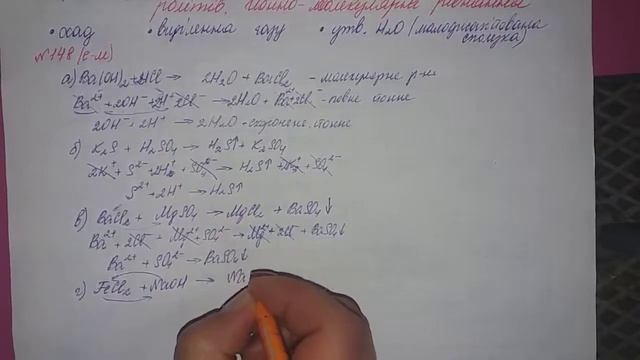 розчинів. Йонно-молекулярні рівняння
• осад • виділення газу • утв. H₂O (малодисоційована сполука)
№148 (є-м)
а) Ba(OH)₂ + 2HCl → 2H₂O + BaCl₂ - молекулярне р-ня
Ba²⁺ + 2OH⁻ + 2H⁺ + 2Cl⁻ → 2H₂O + Ba²⁺ + 2Cl⁻ - повне йонне
2OH⁻ + 2H⁺ → 2H₂O - скорочене йонне
б) K₂S + H₂SO₄ → H₂S↑ + K₂SO₄
2K⁺ + S²⁻ + 2H⁺ + SO₄²⁻ → H₂S↑ + 2K⁺ + SO₄²⁻
S²⁺ + 2H⁺ → H₂S↑
в) BaCl₂ + MgSO₄ → MgCl₂ + BaSO₄↓
Ba²⁺ + 2Cl⁻ + Mg²⁺ + SO₄²⁻ → Mg²⁺ + 2Cl⁻ + BaSO₄↓
Ba²⁺ + SO₄²⁻ → BaSO₄↓
г) FeCl₂ + NaOH → Na